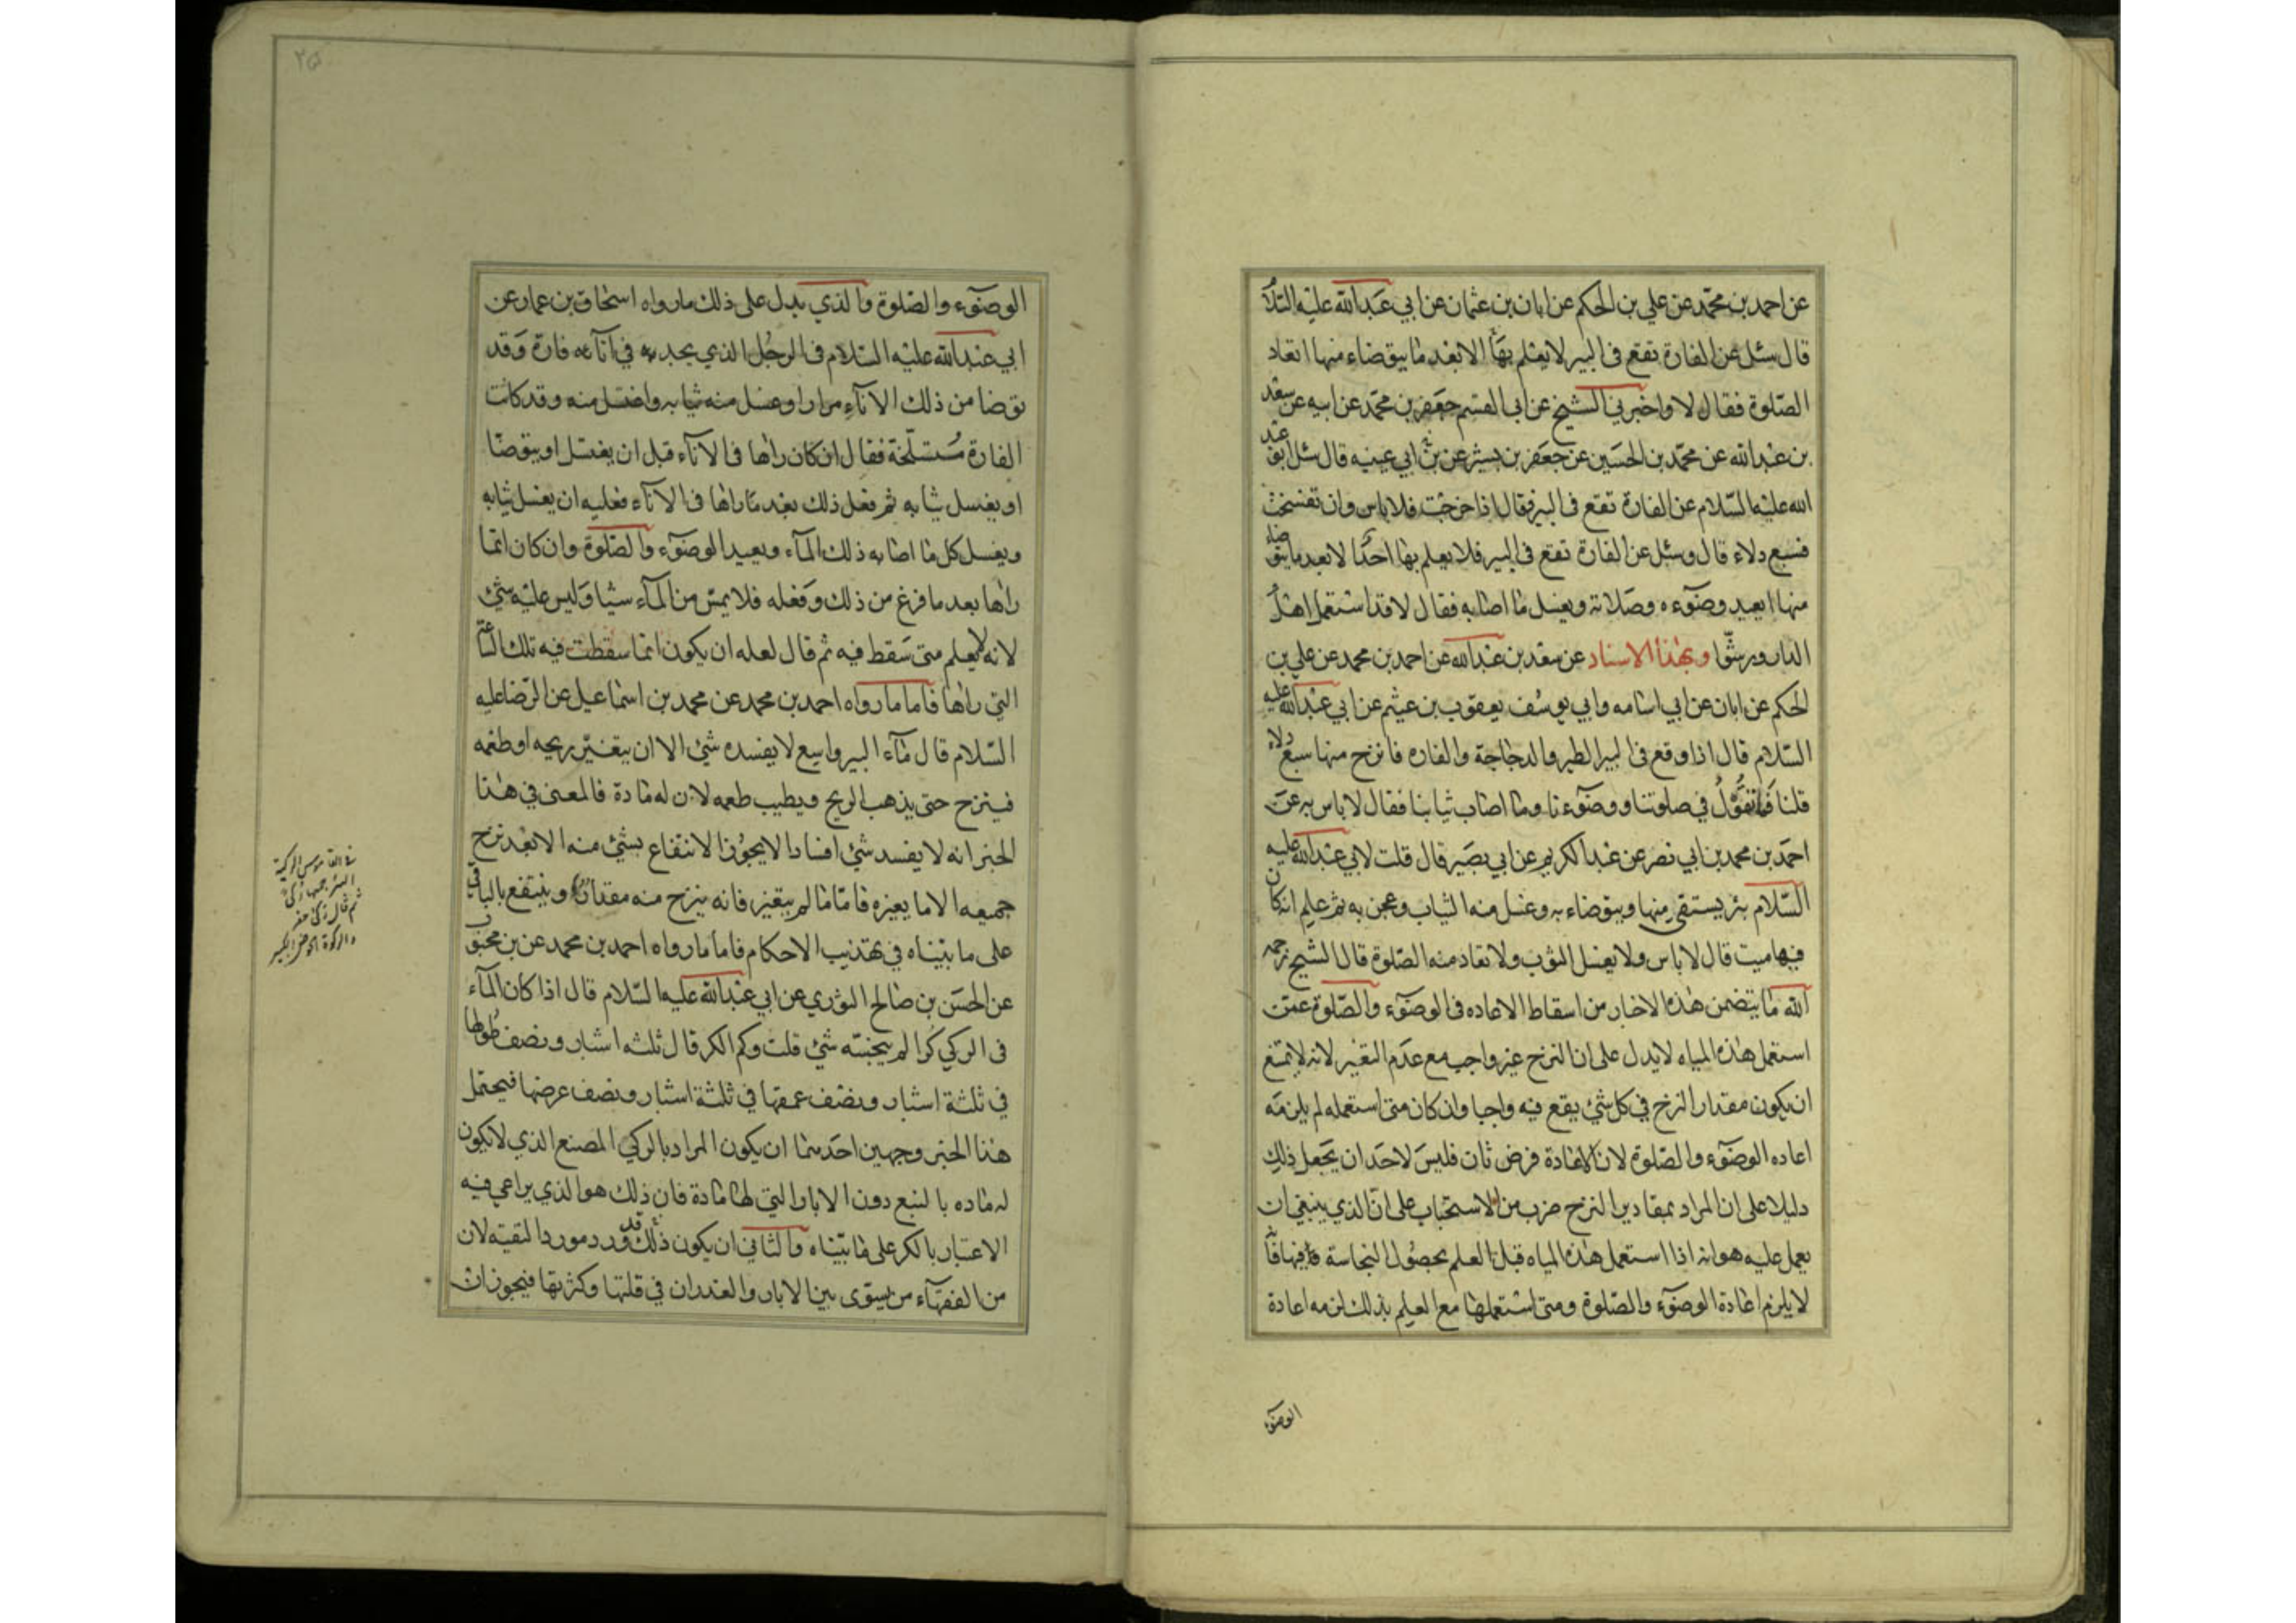 عن احمد بن محمّد عن علي بن الحكم عن ابان بن عثمان عن ابي عبدالله عليه السلا
قال سئل عن الفارة تقع فى البير لا يعلم بها الا بعد ما يتوضاء منها اتعاد
الصّلوة فقال لا واخبرني الشيخ عن ابى القسم جعفر بن محمّد عن ابيه عن سعد
بن عبدالله عن محمّد بن الحسين عن جعفر بن بشير عن ابي عيينه قال سئل ابو عبد
الله عليه السّلام عن الفارة تقع فى البير فقال اذا خرجت فلا باس وان تفسخت
فسبع دلاء قال وسئل عن الفارة تقع فى البير فلا يعلم بها احدًا لا بعد ما يتوضاء
منها ايعيد وضوءه وصلاته ويغسل ما اصابه فقال لا قد استعمل اهل
الدار ورشّوا وبهذا الاسناد عن سعد بن عبدالله عن احمد بن محمد عن علي بن
الحكم عن ابان عن ابي اسامه وابي يوسف يعقوب بن عيثم عن ابي عبدالله عليه
السّلام قال اذا وقع فى البير الطير والدجاجة والفاره فانزح منها سبع دلاء
قلنا فما تقول في صلوتنا ووضوءنا وما اصاب ثيابنا فقال لا باس به عن
احمد بن محمد بن ابي نصر عن عبدالكريم عن ابي بصير قال قلت لابي عبدالله عليه
السّلام بئر يستقى منها ويتوضاء به وغسل منه الثياب وعجن به ثم علم انه كان
فيها ميت قال لا باس ولا يغسل الثوب ولا تعاد منه الصّلوة قال الشيخ رحمه
الله ما يتضمن هذه الاخبار من اسقاط الاعاده فى الوضوء والصّلوة عمن
استعمل هذه المياه لا يدل على ان النزح غير واجب مع عدم التغير لانه لا يمتنع
ان يكون مقدار النزح في كل شئ يقع فيه واجبا وان كان متى استعمله لم يلزمه
اعاده الوضوء والصّلوة لان الاعادة فرض ثان فليس لاحد ان يجعل ذلك
دليلا على ان المراد بمقادير النزح ضرب من الاستحباب على انّ الذي ينبغي ان
يعمل عليه هو انه اذا استعمل هذه المياه قبل العلم بحصول النجاسة فيها فانه
لا يلزم اعادة الوضوء والصّلوة ومتى استعملها مع العلم بذلك لزمه اعادة
الوضوء
٢٥
الوضوء والصّلوة والذي يدل على ذلك ما رواه اسحاق بن عمار عن
ابي عبدالله عليه السّلام في الرجل الذي يجد في آنائه فارة وقد
توضا من ذلك الاناء مرارا وغسل منه ثيابه واغتسل منه وقد كانت
الفارة متسلّخة فقال ان كان راها فى الاناء قبل ان يغتسل او يتوضا
او يغسل ثيابه ثم فعل ذلك بعد ما راها فى الاناء فعليه ان يغسل ثيابه
ويغسل كل ما اصابه ذلك المآء ويعيد الوضوء والصّلوة وان كان انّما
راها بعد ما فرغ من ذلك وفعله فلا يمسّ من المآء شيئا وليس عليه شئ
لانه لا يعلم متى سقط فيه ثم قال لعله ان يكون انما سقطت فيه تلك الساعة
التي راها فاما ما رواه احمد بن محمد عن محمد بن اسماعيل عن الرّضا عليه
السّلام قال مآء البير واسع لا يفسده شئ الا ان يتغيّر ريحه او طعمه
فينزح حتى يذهب الريح ويطيب طعمه لان له مادة فالمعنى في هذا
الخبر انه لا يفسد شئ افسادا لا يجوز الانتفاع بشئ منه الا بعد نزح
جميعه الا ما يغيره فامّا ما لم يتغير فانه ينزح منه مقدار وينتفع بالباقي
على ما بيّناه في تهذيب الاحكام فاما ما رواه احمد بن محمد عن بن محبوب
عن الحسن بن صالح الثوري عن ابي عبدالله عليه السّلام قال اذا كان المآء
فى الركي كرا لم ينجسه شئ قلت وكم الكر قال ثلثه اشبار ونصف طولها
في ثلثة اشبار ونصف عمقها في ثلثة اشبار ونصف عرضها فيحتمل
هذا الخبر وجهين احدهما ان يكون المراد بالركي المصنع الذي لا يكون
له ماده بالنبع دون الابار التي لها مادة فان ذلك هو الذي يراعى فيه
الاعتبار بالكر على ما بيّناه والثاني ان يكون ذلك قد ورد مورد التقيه لان
من الفقهآء من يسوّى بين الابار والغدران في قلتها وكثرتها فيجوز ان
في القاموس الركية
البئر جمعها ركى